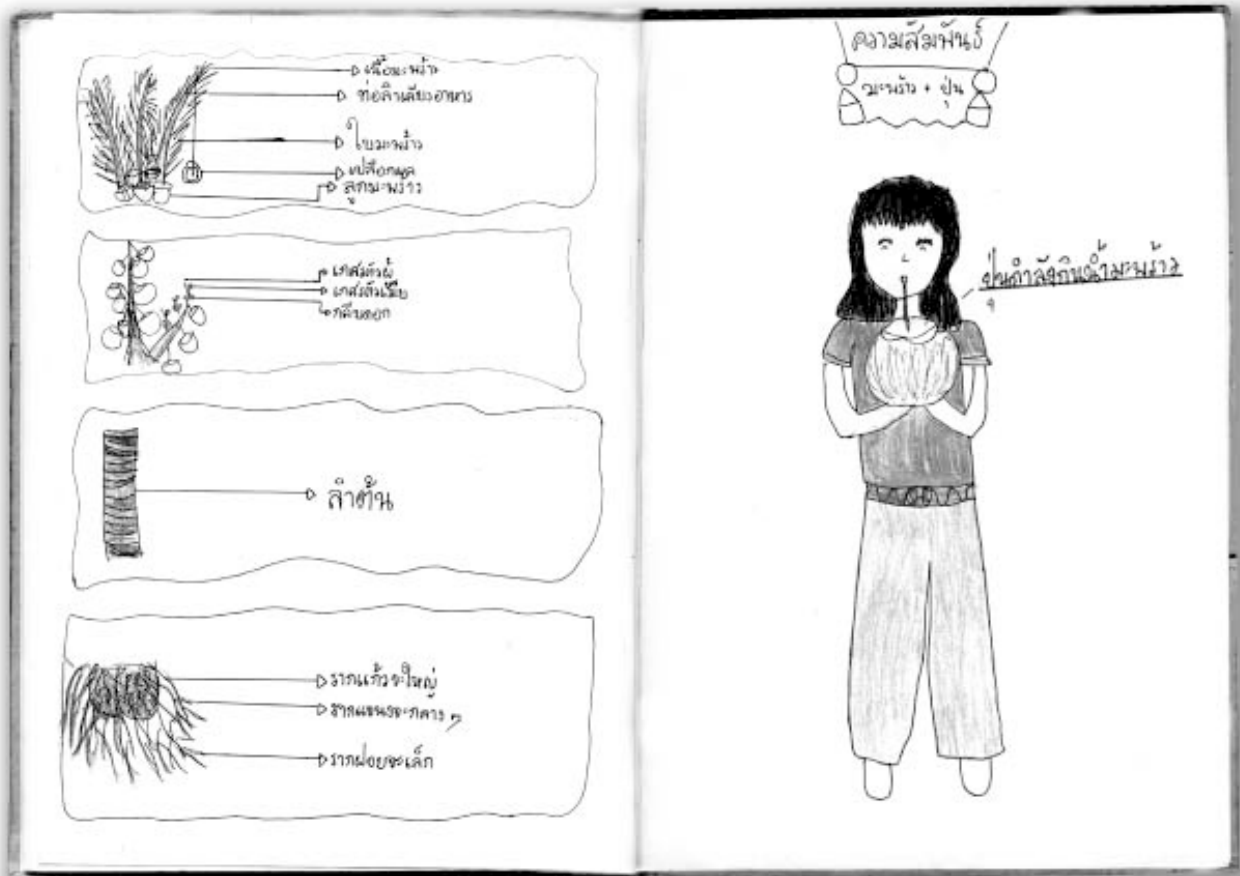 เนื้อมะพร้าว
ท่อลำเลียงอาหาร
ใบมะพร้าว
เปลือกผล
ลูกมะพร้าว
เกสรตัวผู้
เกสรตัวเมีย
กลีบดอก
ลำต้น
รากแก้วจะใหญ่
รากแขนงจะกลาง ๆ
รากฝอยจะเล็ก
ความสัมพันธ์
มะพร้าว + ปุ่น
ปุ่นกำลังกินน้ำมะพร้าว